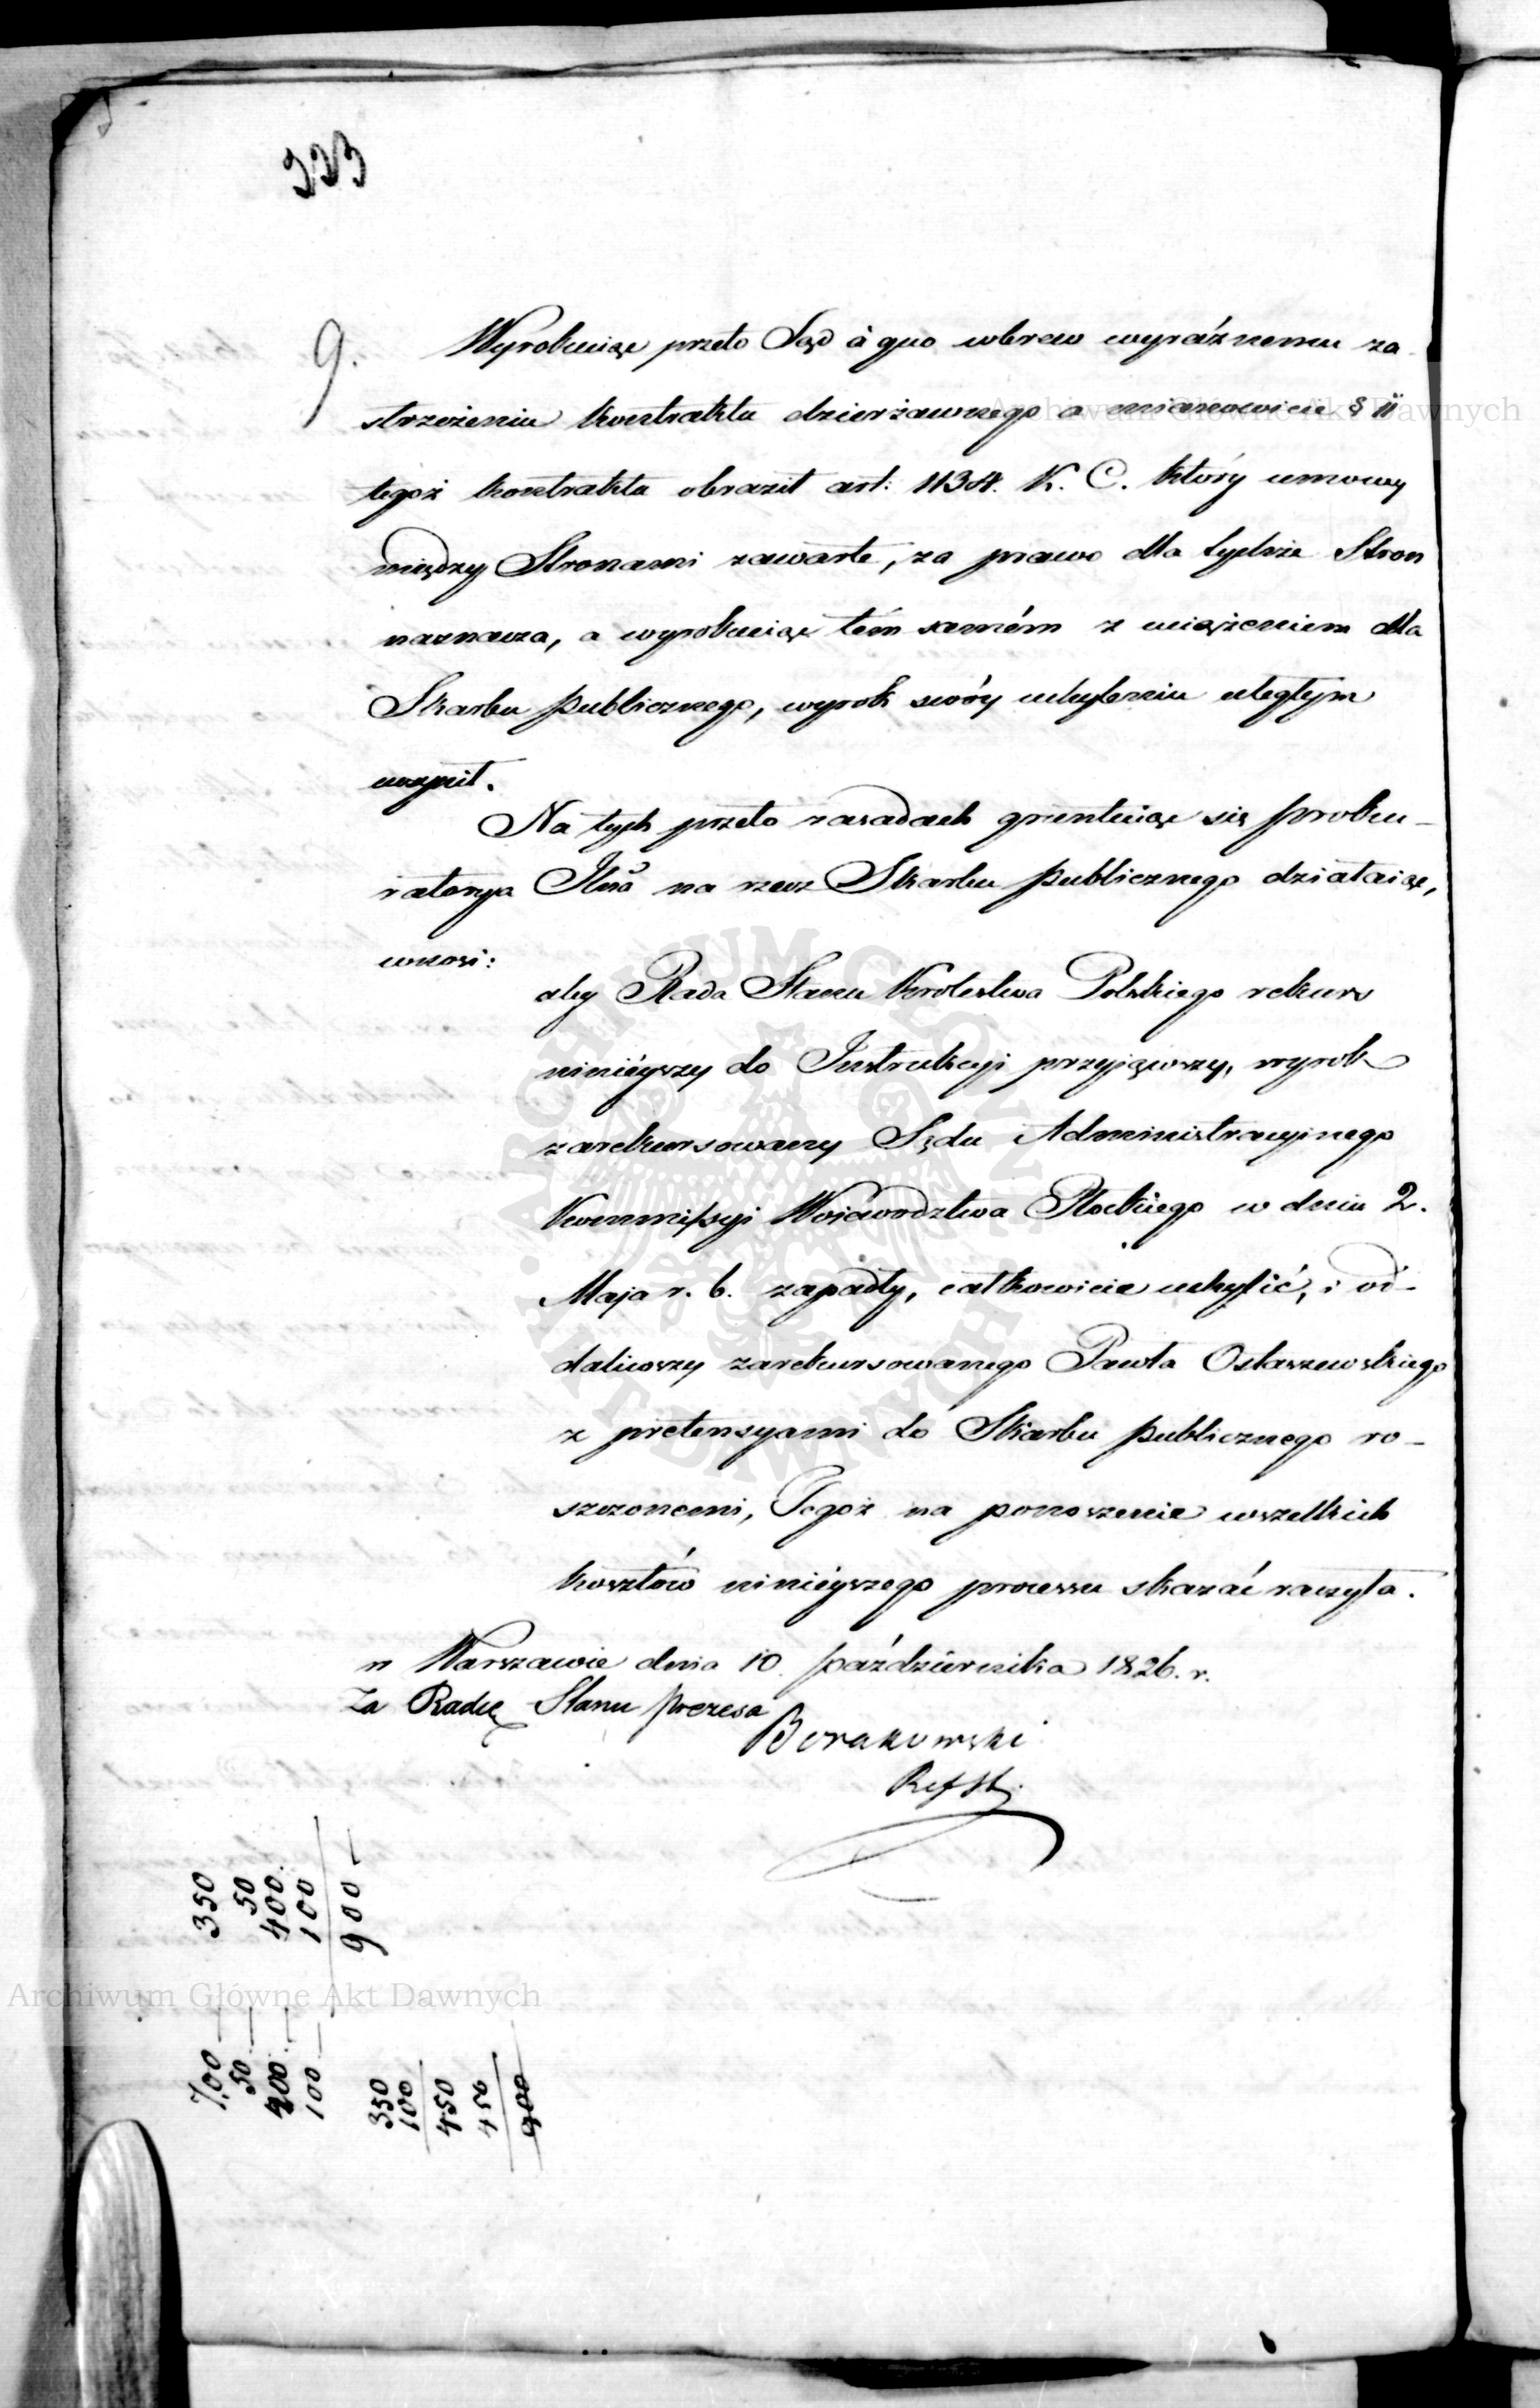 223
9.
Wyrokuiąc przeto Sąd à quo wbrew wyráźnemu za-
strzeżeniu kontraktu dzierżawnego a mianowicie § 11
tegoż kontraktu obraził art: 1134. K. C. który umowy
między Stronami zawarte, za prawo dla tychże Stron
naznacza, a wyrokuiąc tém samém z uciążeniem dla
Skarbu publicznego, wyrok swóy uchyleniu uległym
uczynił.
Na tych przeto zasadach gruntuiąc się proku-
ratorya Jlna na rzecz Skarbu publicznego działaiąc,
wnosi:
aby Rada Stanu Krolestwa Polskiego rekurs
ninieyszy do Instrukcyi przyiąwszy, wyrok
zarekursowany Sądu Administracyinego
Kommissyi Woiewodztwa Płockiego w dniu 2.
Maja r. b. zapadły, całkowicie uchylić, i od-
daliwszy zarekursowanego Pawła Ostaszewskiego
z pretensyami do Skarbu publicznego ro-
szczonemi, Tegoż na ponoszenie wszelkich
kosztów ninieyszego processu skazać raczyła.
w Warszawie dnia 10. października 1826. r.
Za Radcę Stanu prezesa
Borakowski
Ref St.
350
50
400.
100
900
700
50
400
100
350
100
450
450
900
Archiwum Główne Akt Dawnych
Archiwum Główne Akt Dawnych
ARCHIWUM GŁÓWNE AKT DAWNYCH